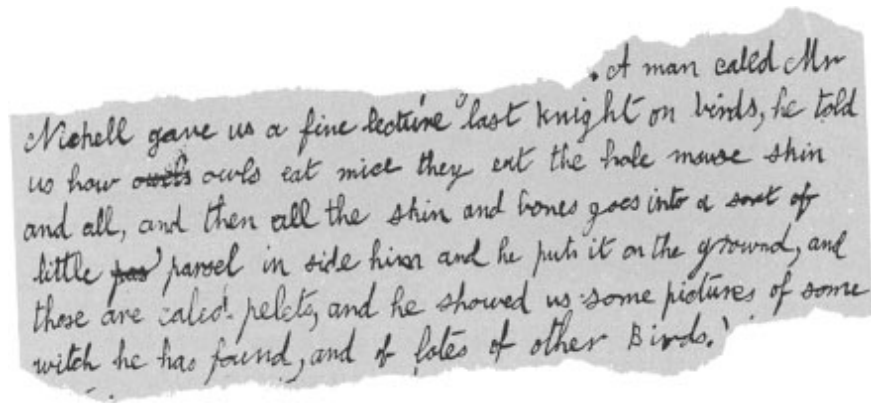 . A man caled Mr
Nichell gave us a fine lecture last knight on birds, he told
us how owels owls eat mice they eat the hole mouse skin
and all, and then all the skin and bones goes into a sort of
little par parsel in side him and he puts it on the ground, and
those are caled pelets, and he showed us some pictures of some
witch he has found, and of lotes of other Birds.'